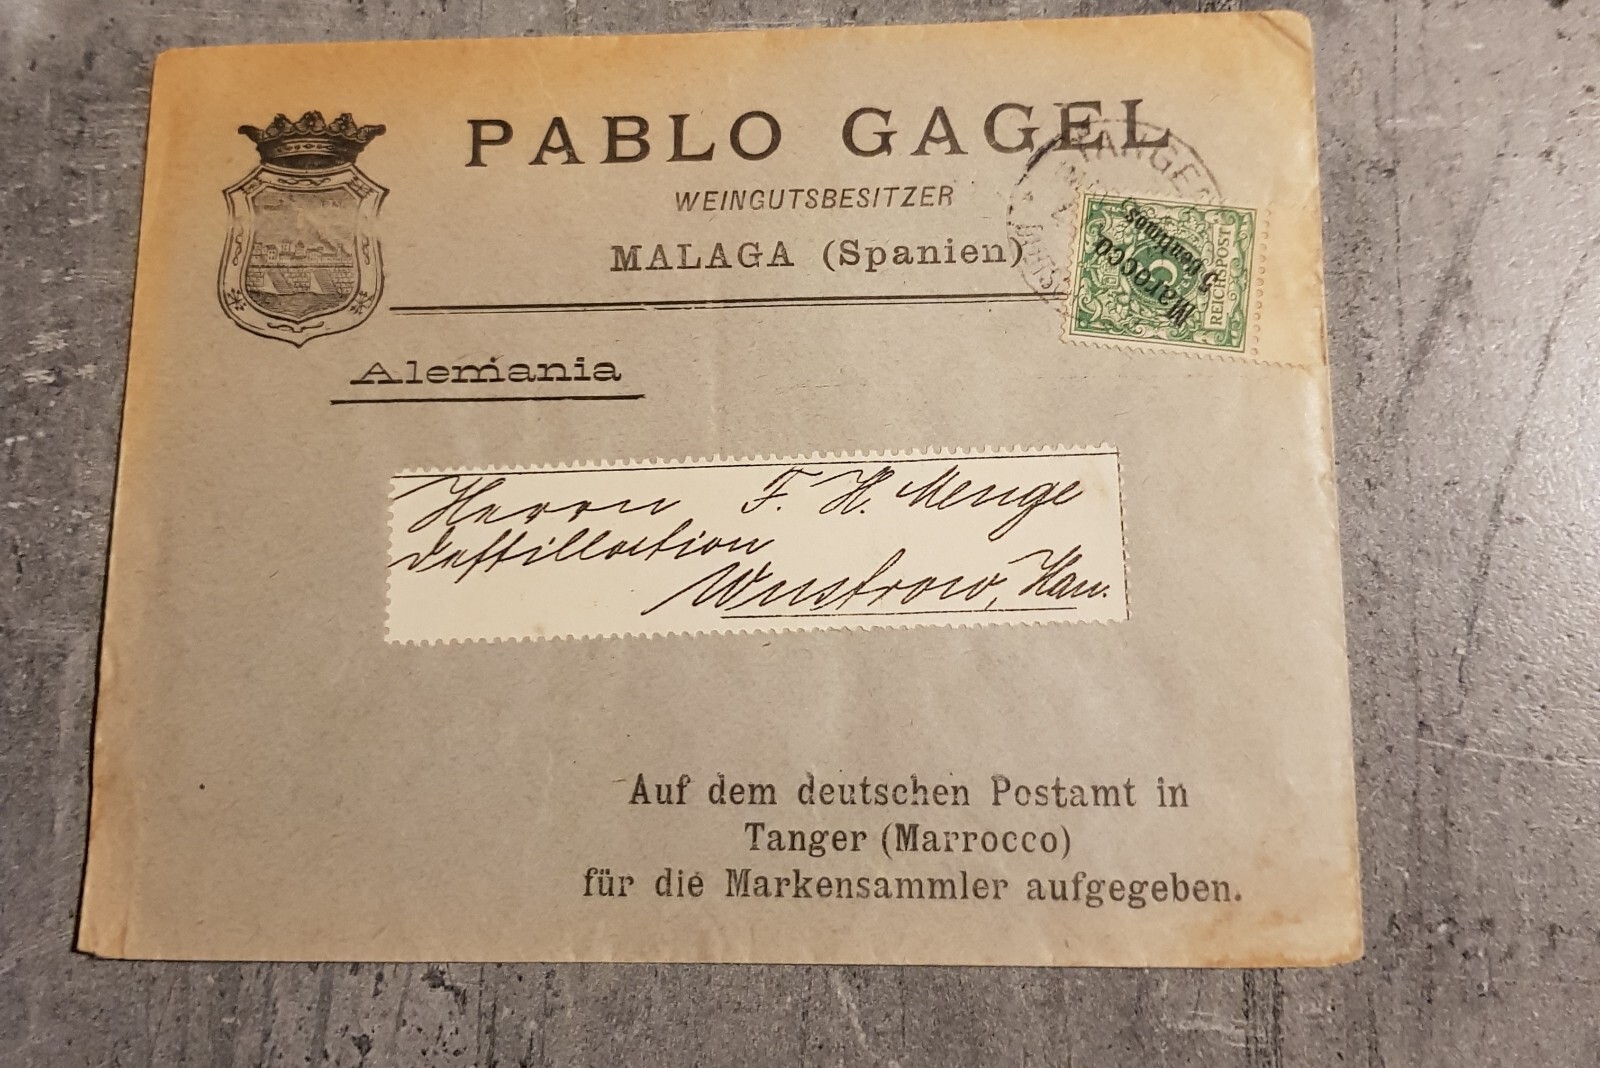 PABLO GAGEL
WEINGUTSBESITZER
MALAGA (Spanien)
TANGER
REICHSPOST
Marocco
5 Centimos
5
Alemania
Herrn F. H. Menge
Destillation
Wustrow, Han.
Auf dem deutschen Postamt in
Tanger (Marrocco)
für die Markensammler aufgegeben.